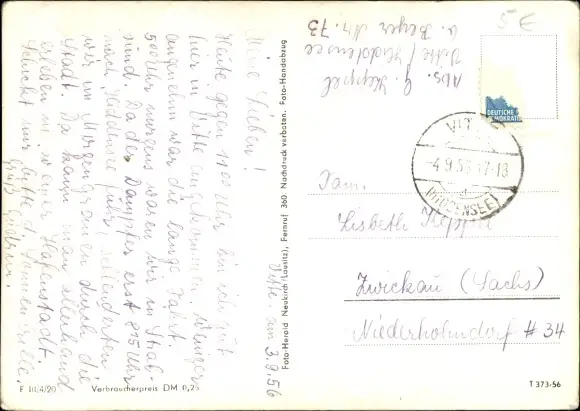 Vitte, am 3.9.56
Meine Lieben!
Heute gegen 11 00 Uhr bin ich gut
hier in Vitte angekommen. Weniger
angenehm war die lange Fahrt.
500 Uhr morgens waren wir in Stral-
sund. Da der Dampfer erst 815 Uhr
nach Hiddensee fuhr,
wir im Morgengrauen durch die
Stadt. Da kann man allerhand
erleben in einer Hafenstadt.
Schickt mir bitte d. Sonnenbrille.
Gruß Günter.
F III/4/20 Verbraucherpreis DM 0,25
Foto-Herold Neukirch (Lausitz), Fernruf 360. Nachdruck verboten. Foto-Handabzug
Abs. G. Keppel
Vitte / Hiddensee
b. Beyer Nr. 73
DEUTSCHE
DEMOKRAT
VITTE
-4.9.56.17-13
(HIDDENSEE)
Fam.
Lisbeth Keppel
Zwickau (Sachs)
Niederhohndorf # 34
T 373-56